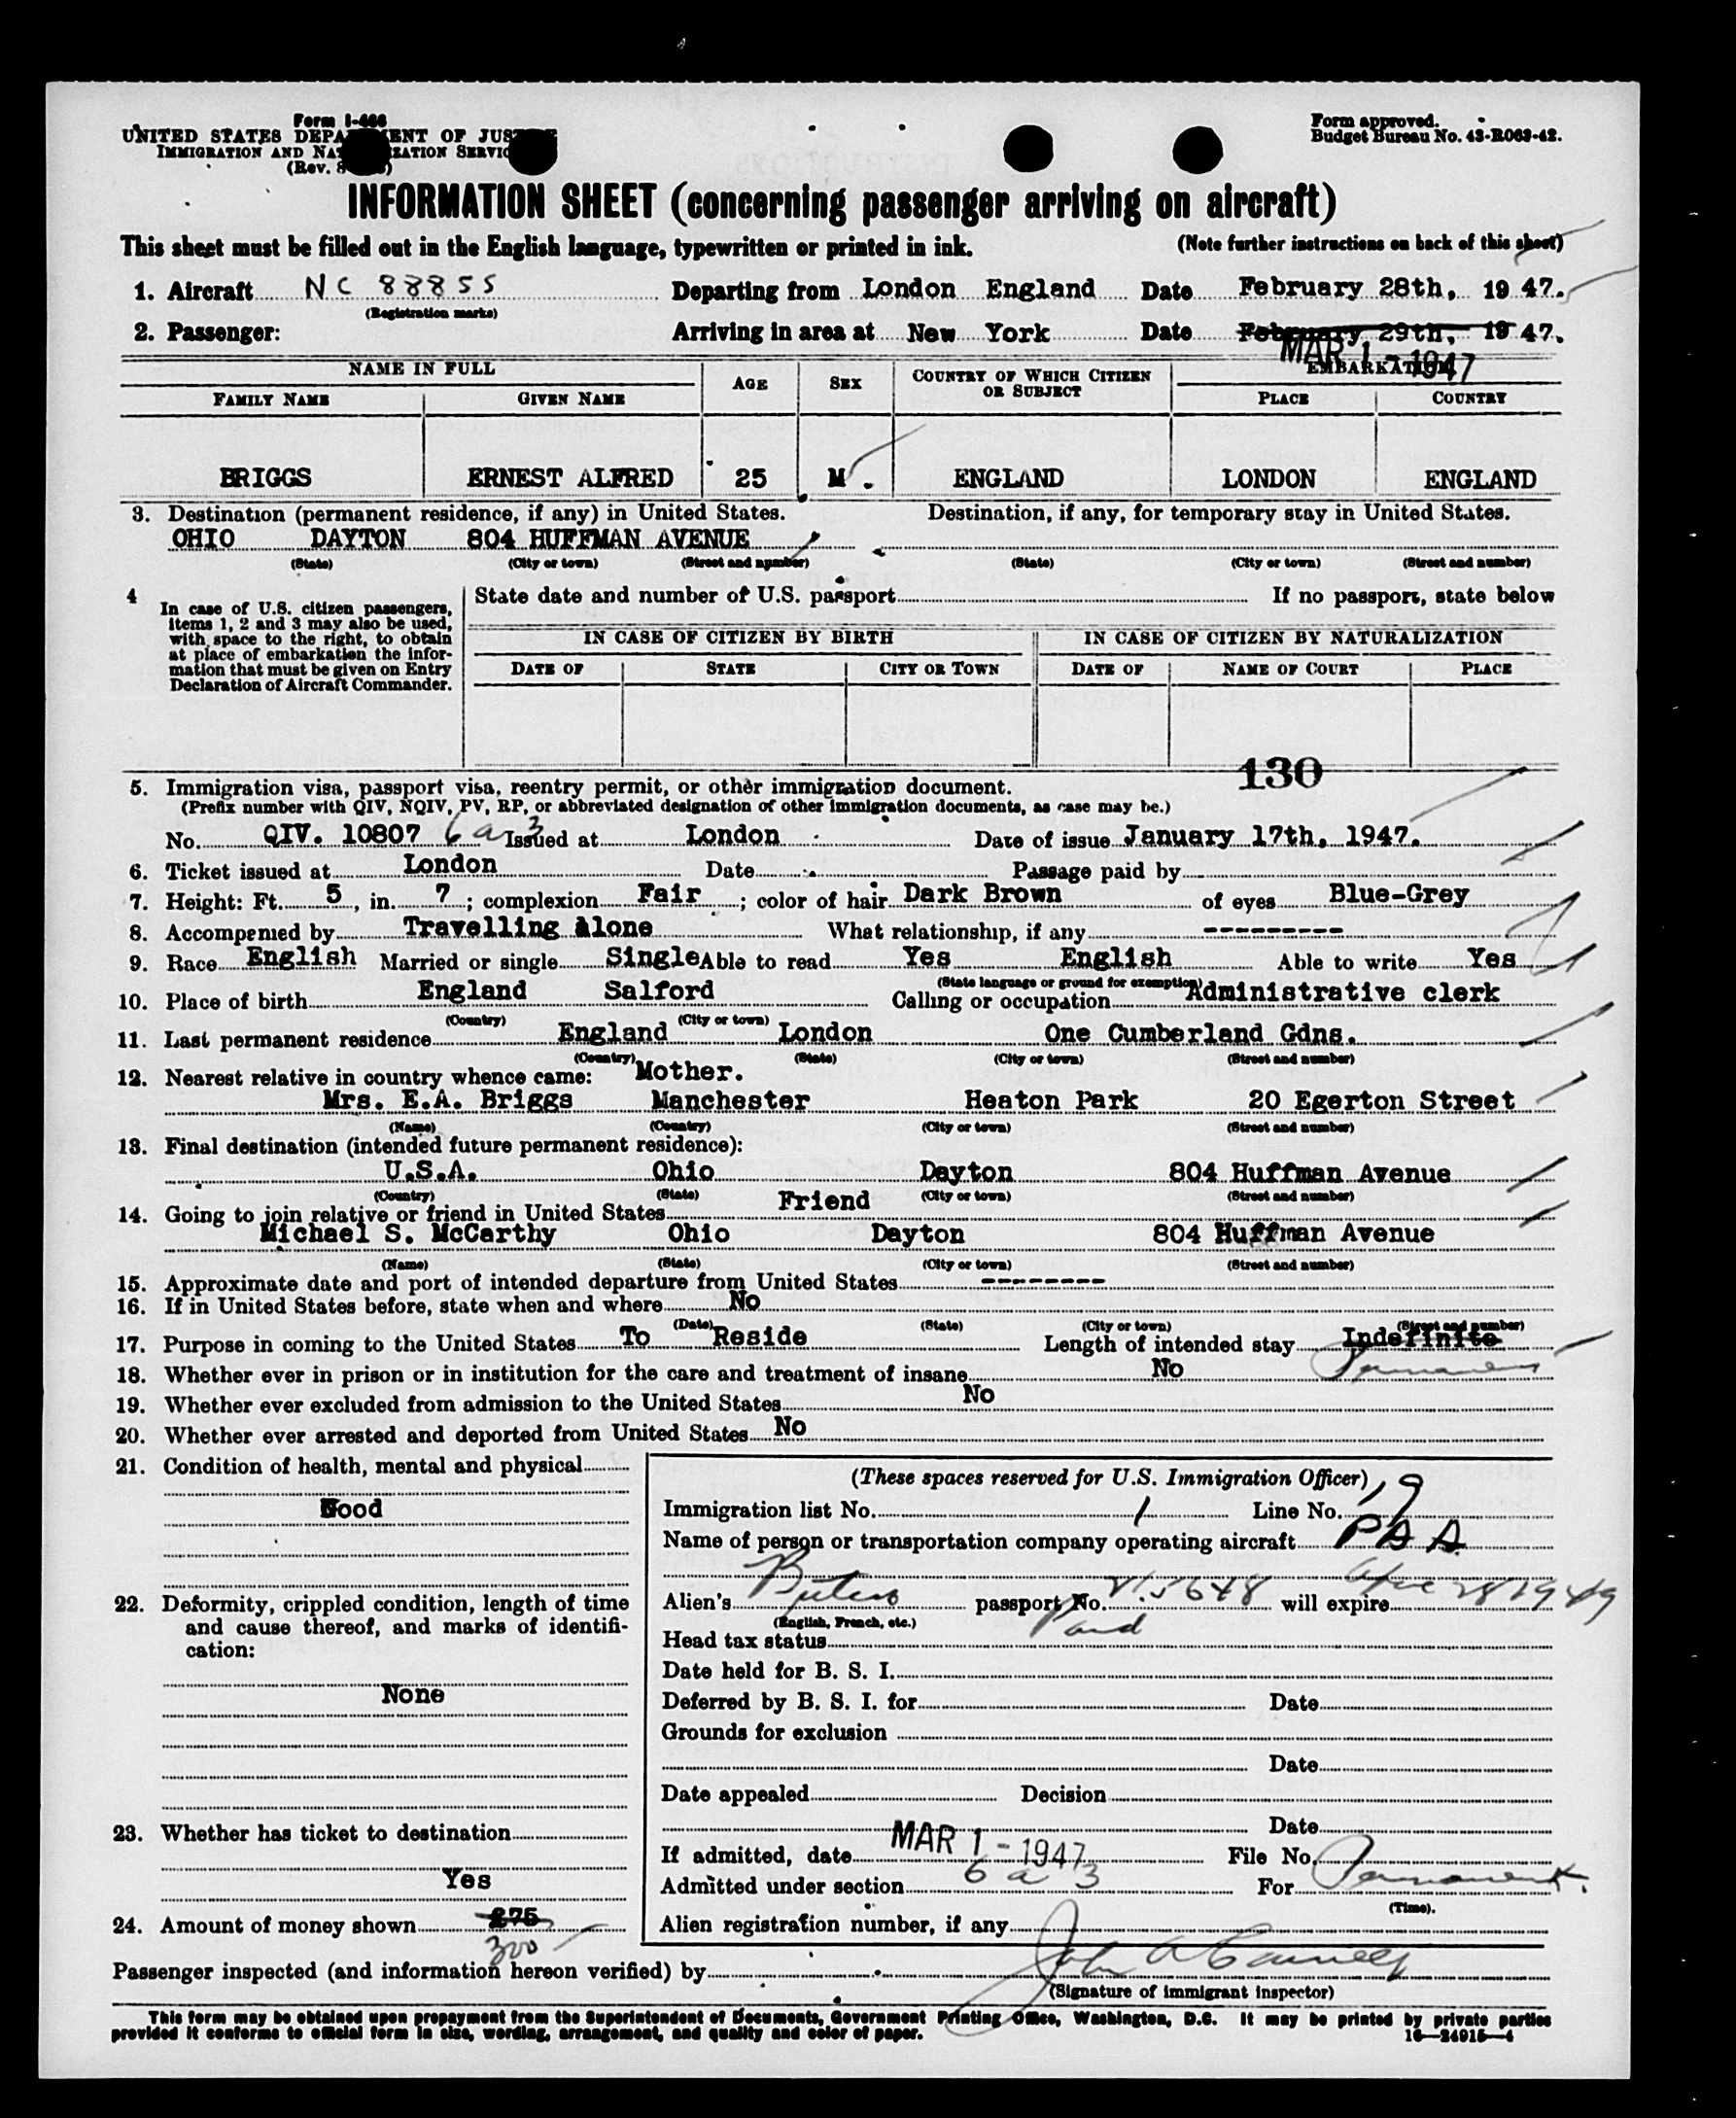 Form I-466
UNITED STATES DEPARTMENT OF JUSTICE
IMMIGRATION AND NATURALIZATION SERVICE
(Rev.
Form approved.
Budget Bureau No. 43-R063-42.
INFORMATION SHEET (concerning passenger arriving on aircraft)
This sheet must be filled out in the English language, typewritten or printed in ink. (Note further instructions on back of this sheet)
1. Aircraft NC 88855 Departing from London England Date February 28th, 1947.
(Registration marks)
2. Passenger: Arriving in area at New York Date February 29th, 1947.
MAR 1 - 1947
NAME IN FULL AGE SEX COUNTRY OF WHICH CITIZEN OR SUBJECT EMBARKATION
FAMILY NAME GIVEN NAME PLACE COUNTRY
BRIGGS ERNEST ALFRED 25 M. ENGLAND LONDON ENGLAND
3. Destination (permanent residence, if any) in United States. Destination, if any, for temporary stay in United States.
OHIO DAYTON 804 HUFFMAN AVENUE
(State) (City or town) (Street and number) (State) (City or town) (Street and number)
4 In case of U.S. citizen passengers, items 1, 2 and 3 may also be used, with space to the right, to obtain at place of embarkation the information that must be given on Entry Declaration of Aircraft Commander.
State date and number of U.S. passport If no passport, state below
IN CASE OF CITIZEN BY BIRTH IN CASE OF CITIZEN BY NATURALIZATION
DATE OF STATE CITY OR TOWN DATE OF NAME OF COURT PLACE
130
5. Immigration visa, passport visa, reentry permit, or other immigration document.
(Prefix number with QIV, NQIV, PV, RP, or abbreviated designation of other immigration documents, as case may be.)
No. QIV. 10807 6a3 Issued at London Date of issue January 17th, 1947.
6. Ticket issued at London Date Passage paid by
7. Height: Ft. 5, in. 7; complexion Fair; color of hair Dark Brown of eyes Blue-Grey
8. Accompanied by Travelling Alone What relationship, if any ---------
9. Race English Married or single Single Able to read Yes English Able to write Yes
(State language or ground for exemption)
10. Place of birth England Salford Calling or occupation Administrative clerk
(Country) (City or town)
11. Last permanent residence England London One Cumberland Gdns.
(Country) (State) (City or town) (Street and number)
12. Nearest relative in country whence came: Mother.
Mrs. E.A. Briggs Manchester Heaton Park 20 Egerton Street
(Name) (Country) (City or town) (Street and number)
13. Final destination (intended future permanent residence):
U.S.A. Ohio Dayton 804 Huffman Avenue
(Country) (State) (City or town) (Street and number)
14. Going to join relative or friend in United States Friend
Michael S. McCarthy Ohio Dayton 804 Huffman Avenue
(Name) (State) (City or town) (Street and number)
15. Approximate date and port of intended departure from United States --------
16. If in United States before, state when and where No
(Date) (State) (City or town) (Street and number)
17. Purpose in coming to the United States To Reside Length of intended stay Indefinite
Permanent
18. Whether ever in prison or in institution for the care and treatment of insane No
19. Whether ever excluded from admission to the United States No
20. Whether ever arrested and deported from United States No
21. Condition of health, mental and physical
Good
22. Deformity, crippled condition, length of time and cause thereof, and marks of identification:
None
23. Whether has ticket to destination
Yes
24. Amount of money shown £75
300
(These spaces reserved for U.S. Immigration Officer)
Immigration list No. 1 Line No. 19
Name of person or transportation company operating aircraft PAA
Alien's passport No. 215648 will expire 28 1949
(English, French, etc.)
Head tax status Paid
Date held for B. S. I.
Deferred by B. S. I. for Date
Grounds for exclusion
Date
Date appealed Decision
Date
If admitted, date MAR 1 - 1947 File No.
Admitted under section 6 a 3 For Permanent.
(Time).
Alien registration number, if any
Passenger inspected (and information hereon verified) by John A
(Signature of immigrant inspector)
This form may be obtained upon prepayment from the Superintendent of Documents, Government Printing Office, Washington, D.C. It may be printed by private parties
provided it conforms to official form in size, wording, arrangement, and quality and color of paper. 16—24915-4